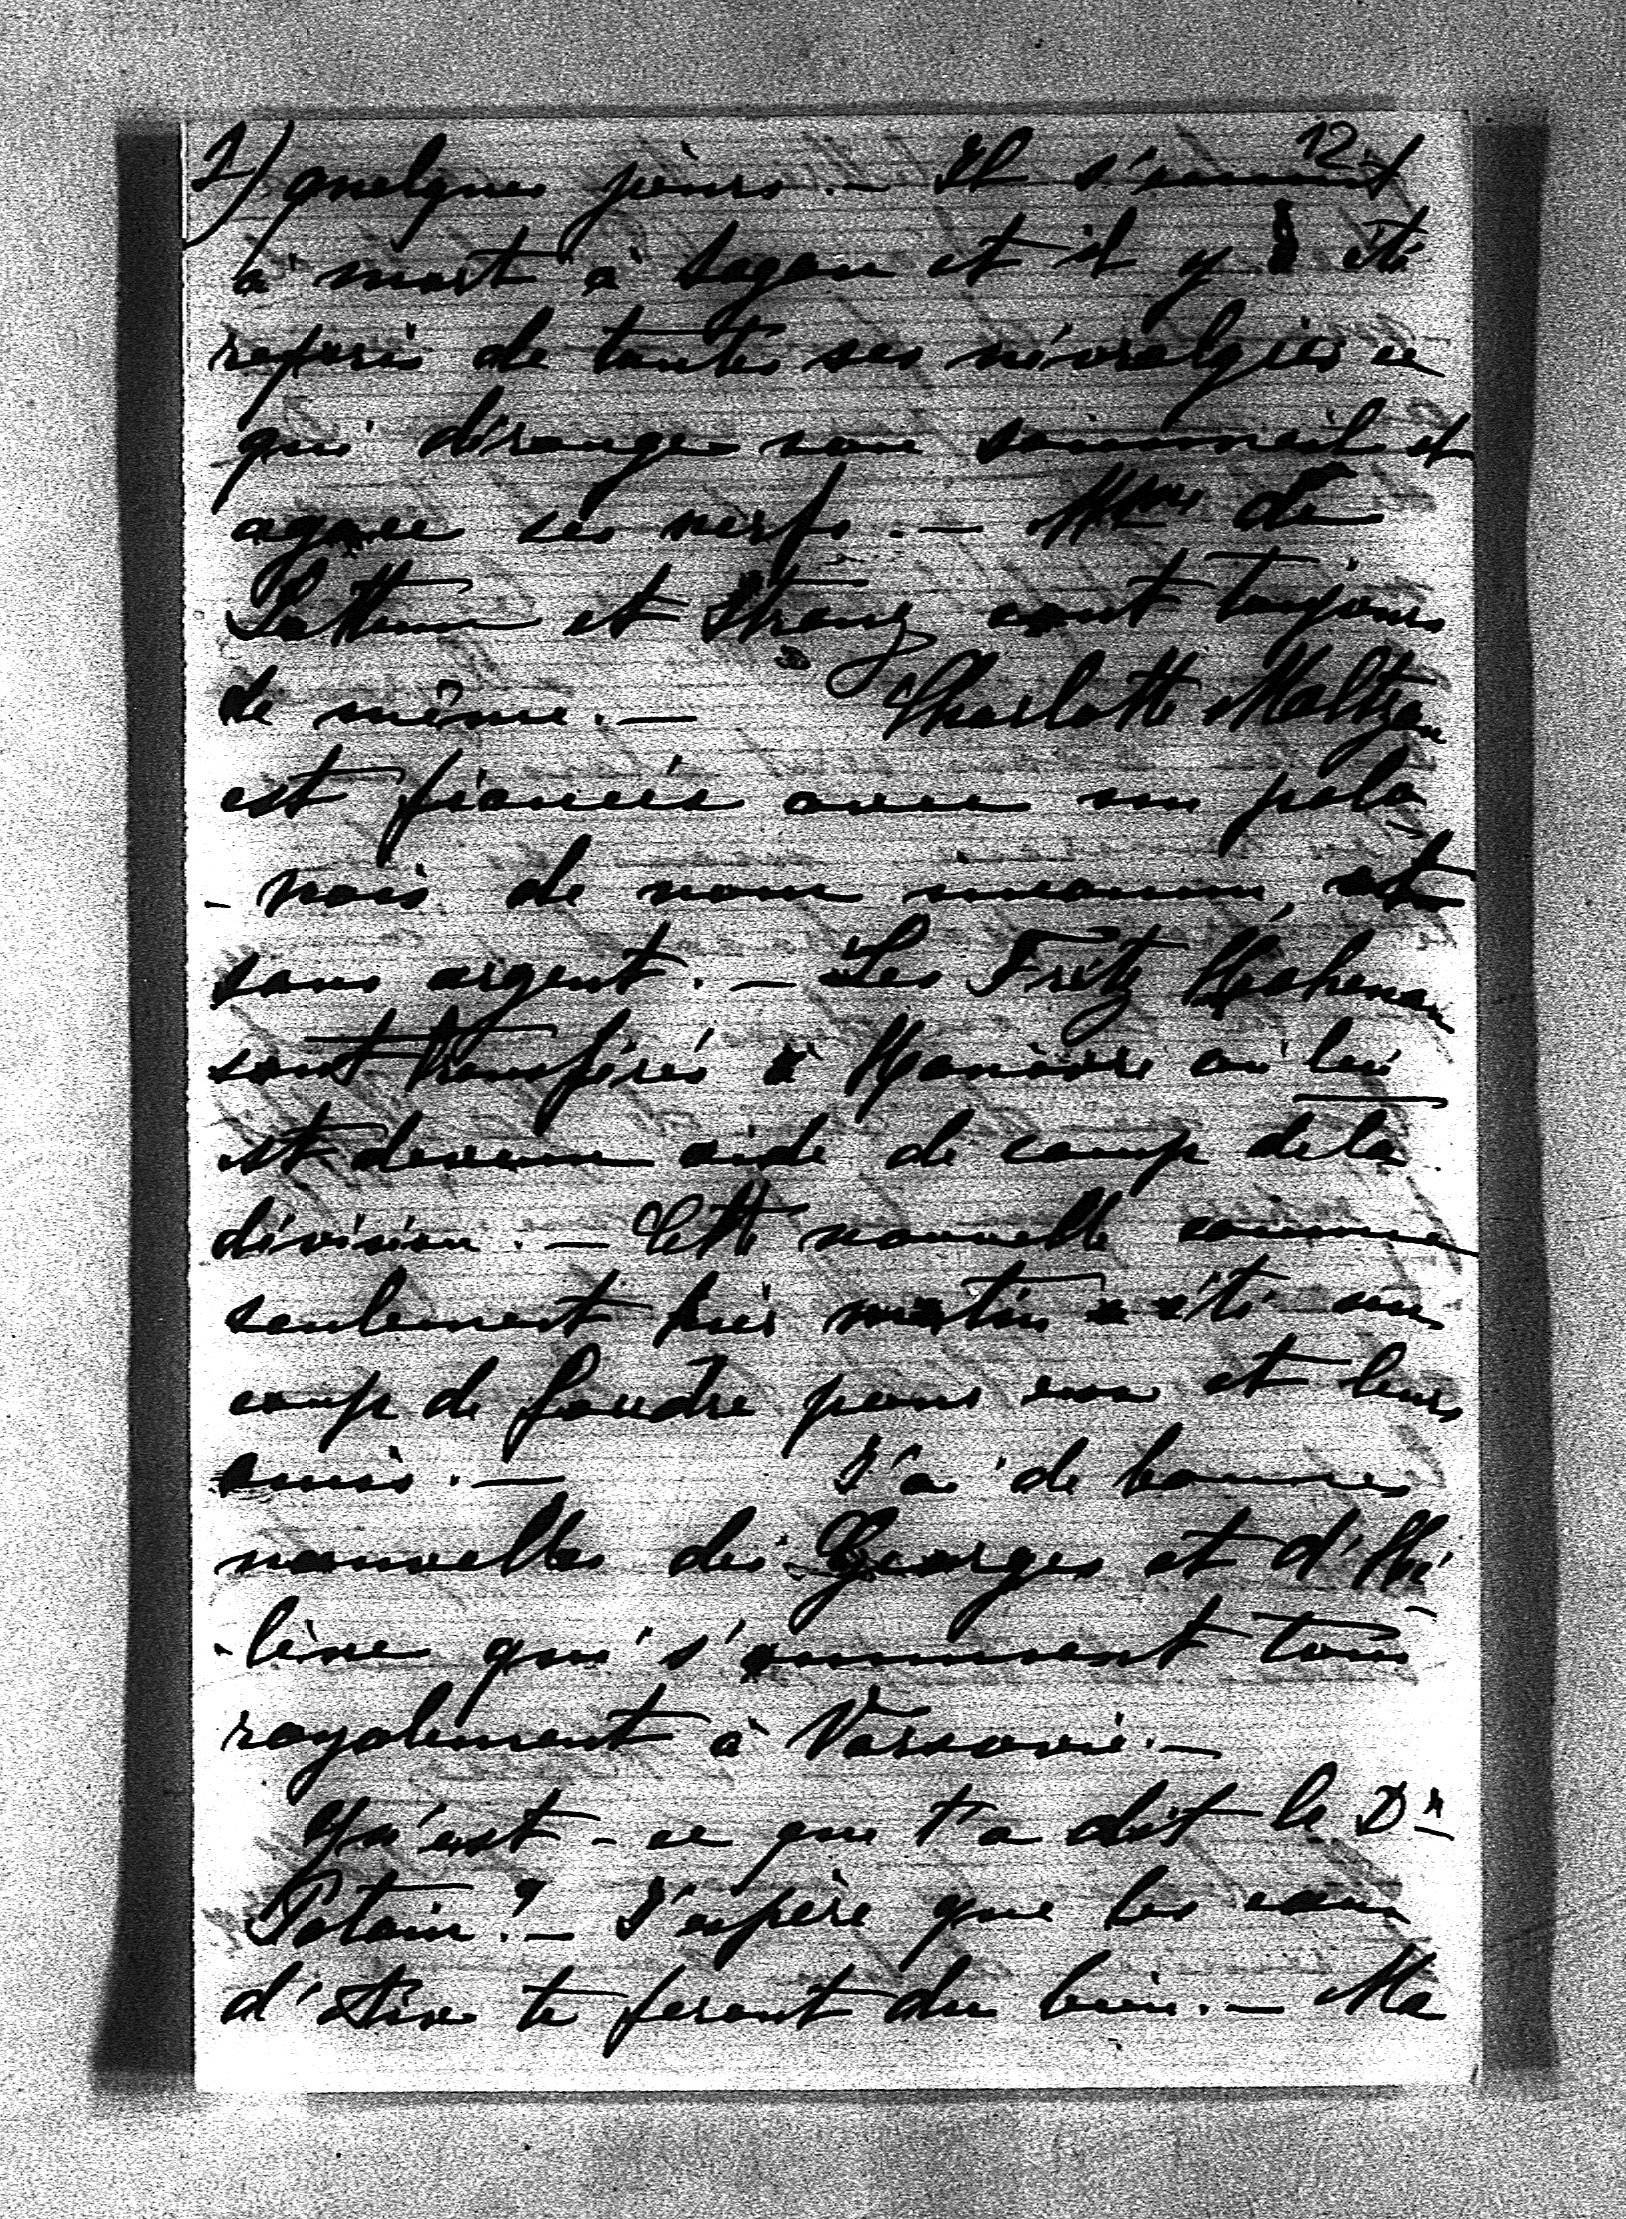 12.
2) quelques jours. — Il s'ennuit
à mort à Sagan et il y a été
repris de toutes ses névralgies ce
qui dérange son sommeil et
agace ses nerfs. — Mme de
et Stranz sont toujours
de même. — Charlotte Maltzan
est fiancée avec un polo-
-nois de nom inconnu, et
sans argent. — Les Fritz Hohenau
sont transférés à Hanovre où lui
est devenu aide de camp de la
division. — Cette nouvelle connue
seulement hier matin a été un
coup de foudre pour eux et leurs
amis. — J'ai de bonnes
nouvelles des Georges et d'Hé-
-lène qui s'amusent tous
royalement à Varsovie. —
Qu'est-ce que t'a dit le Dr
Potain? — J'espère que les eaux
d'Aix te feront du bien. — Ma